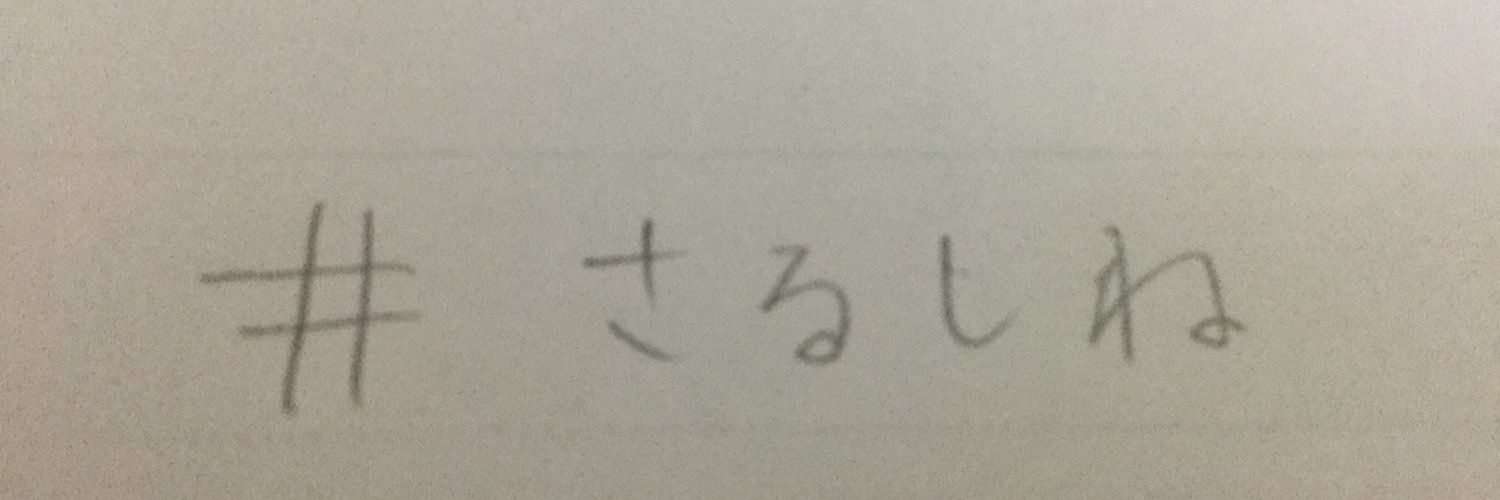 #さるしね